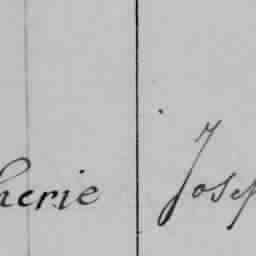 herie Josep